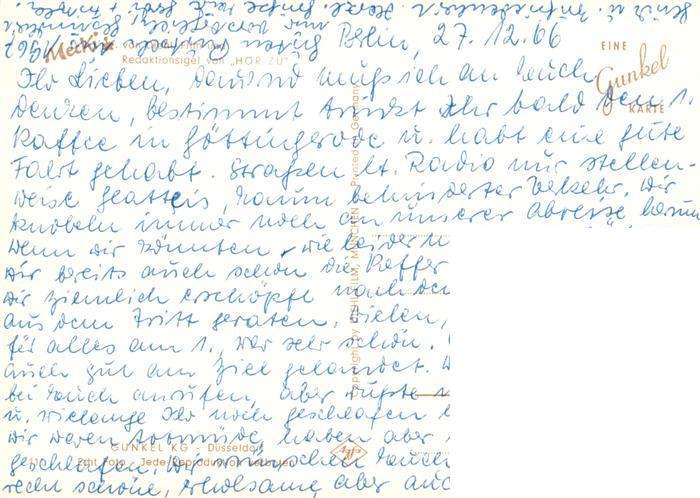 Berlin, 27.12.66
Mecki
Redaktionsigel von „HÖR ZU“
EINE
Gunkel
KARTE
Ihr Lieben, dauernd muß ich an Euch
denken, bestimmt trinkt Ihr bald den 1.
Kaffee in Göttingerode u. habt eine gute
Fahrt gehabt. Straßen lt. Radio nur stellen-
weise Glatteis, kaum behinderter Verkehr. Wir
knobeln immer noch an unserer Abreise herum
wenn wir könnten, wie beiden
wir bereits auch schon die Koffer
wir ziemlich erschöpft nach
aus dem Tritt geraten. Vielen,
für alles am 1., war sehr schön.
auch gut am Ziel gelandet.
bei Euch anrufen, aber wußte
u. wielange Ihr noch geschlafen
wir waren todmüde, haben aber
geschlafen. Wir wünschen Euch
recht schöne, erholsame, aber auch
Copyright by DIEHL-FILM, MÜNCHEN
Printed in Germany
GUNKEL KG - Düsseldorf
Echt Foto - Jede Reproduktion verboten
Agfa